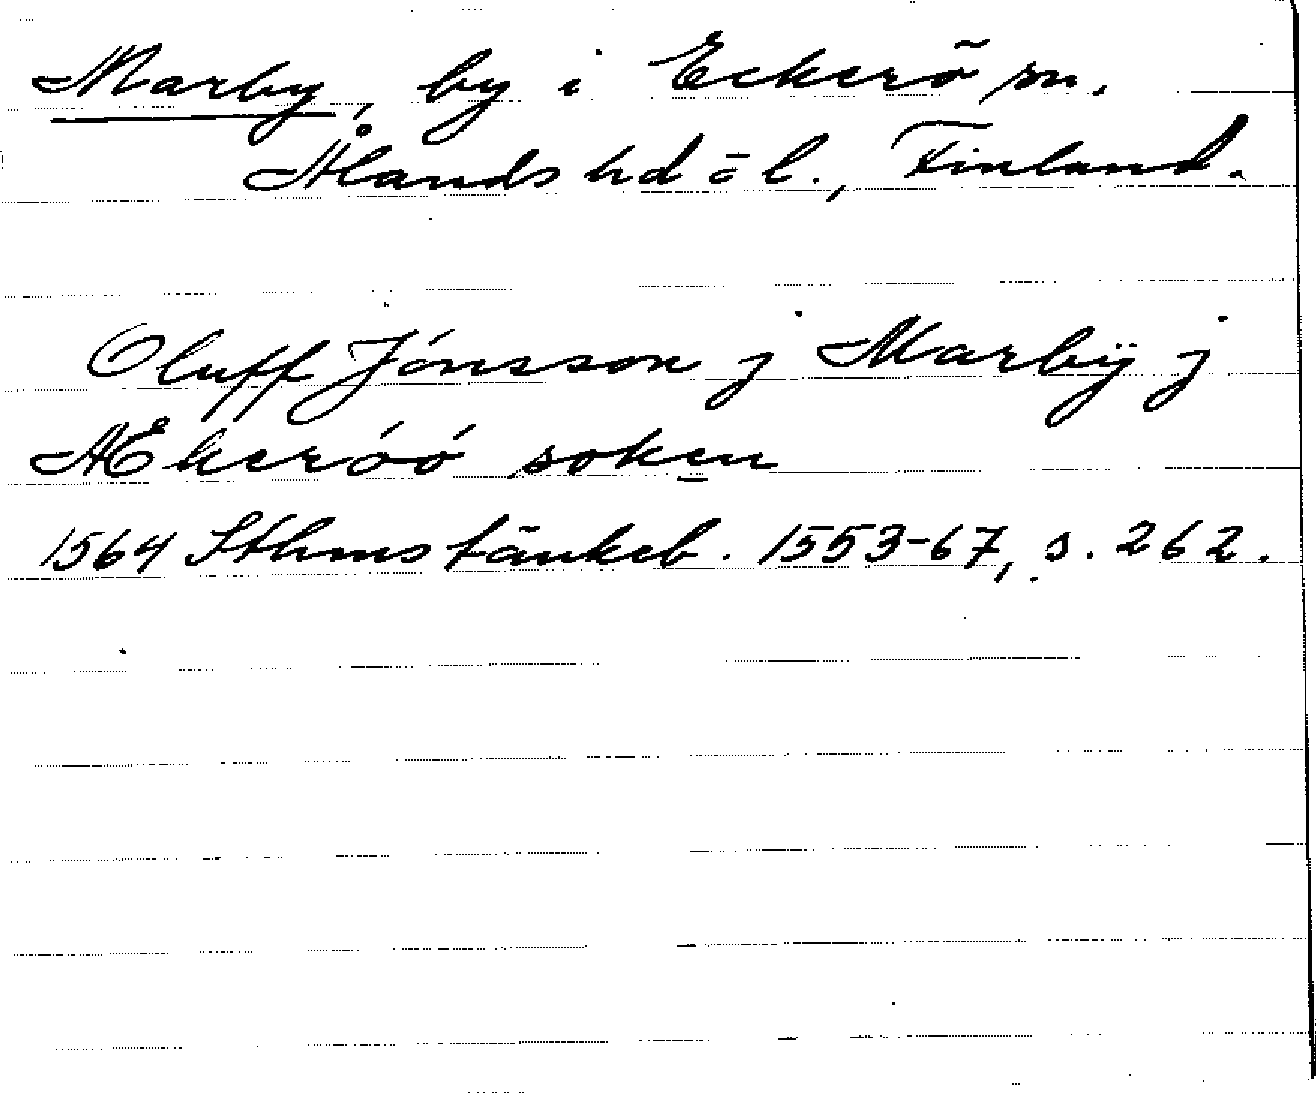 Marby, by i Eckerö sn.
Ålands hd o l., Finland.
Oluff Jónsson j Marbÿ j
Ækeróó soken
1564 Sthms tänkeb. 1553-67, s. 262.